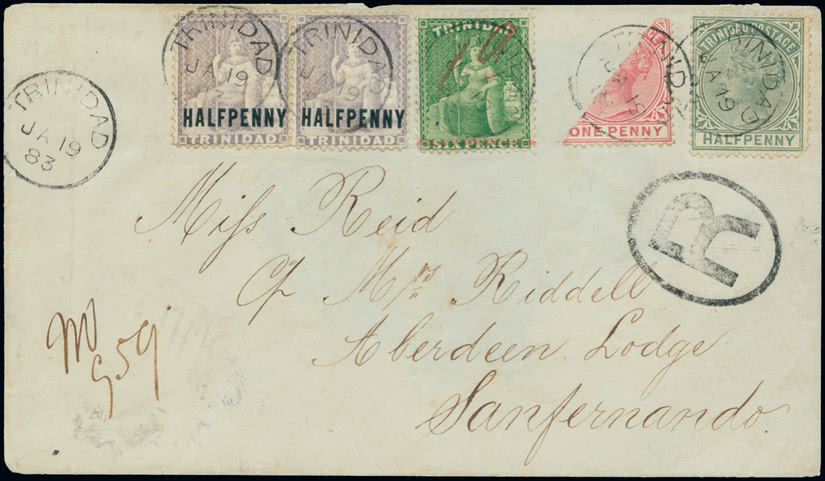 TRINIDAD
JA 19
83
HALFPENNY
TRINIDAD
TRINIDAD
JA 19
HALFPENNY
TRINIDAD
TRINIDAD
SIX PENCE
1d
TRINIDAD
ONE PENNY
TRINIDAD POSTAGE
TRINIDAD
JA 19
HALFPENNY
R
Miss Reid
Of Mrs Riddell
Aberdeen Lodge
Sanfernando.
No
959